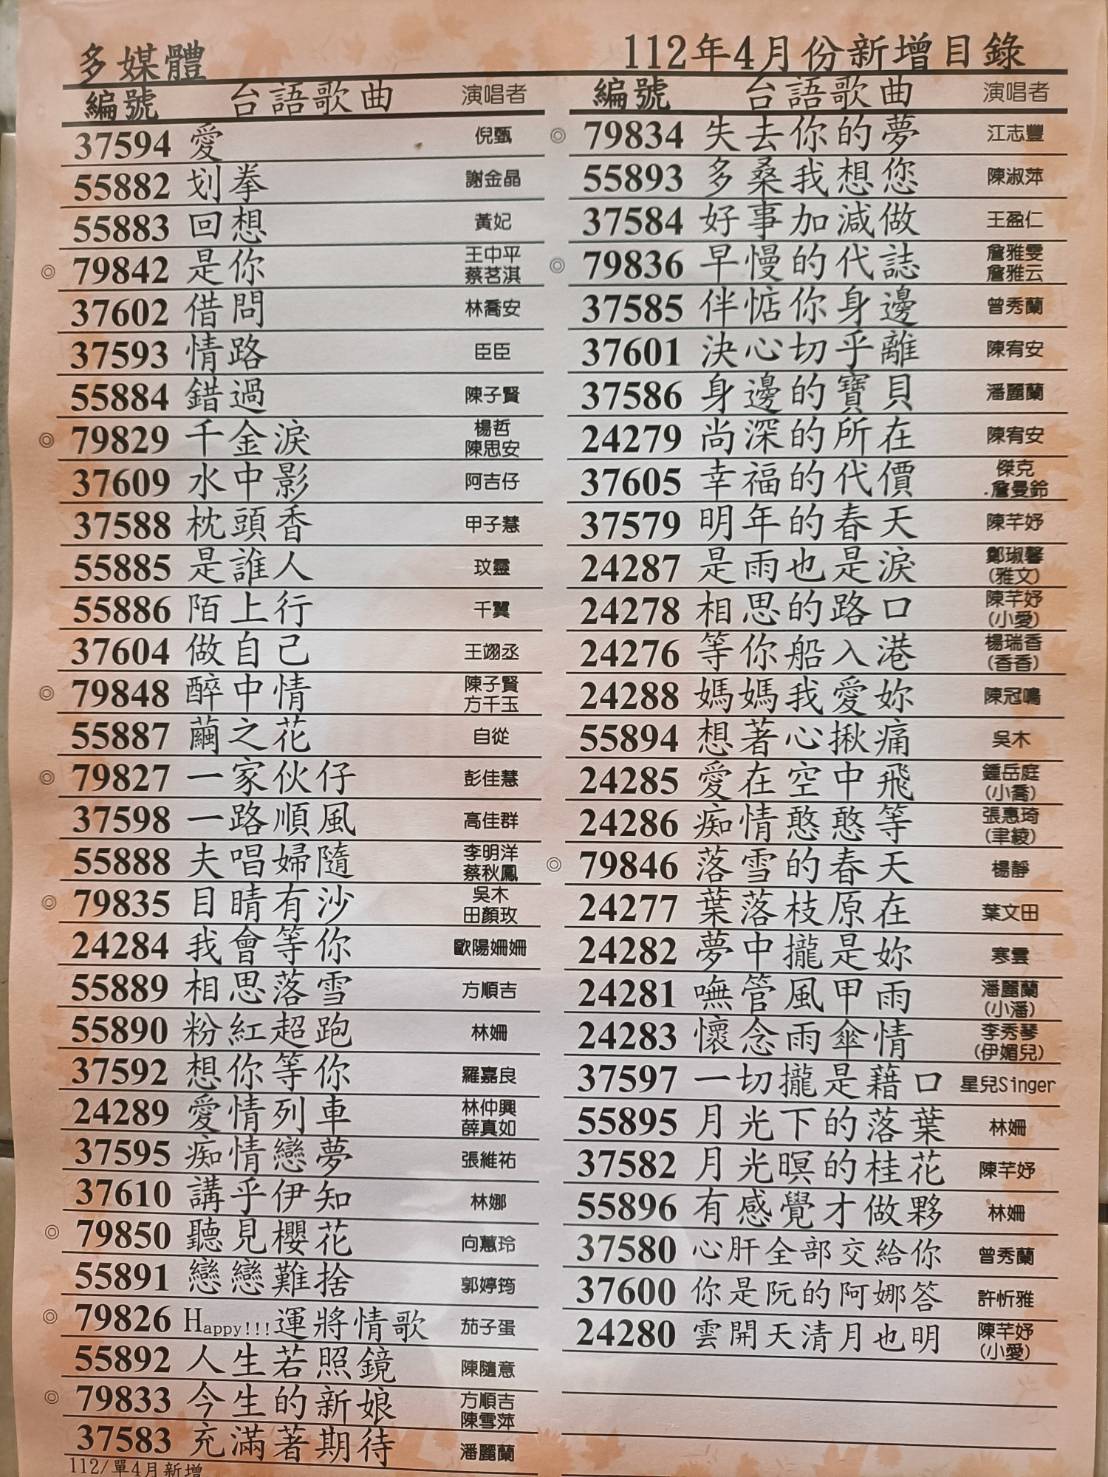 多媒體
112年4月份新增目錄
編號 台語歌曲 演唱者
37594 愛 倪甄
55882 划拳 謝金晶
55883 回想 黃妃
◎ 79842 是你 王中平 蔡茗淇
37602 借問 林喬安
37593 情路 臣臣
55884 錯過 陳子賢
◎ 79829 千金淚 楊哲 陳思安
37609 水中影 阿吉仔
37588 枕頭香 甲子慧
55885 是誰人 玟靈
55886 陌上行 千翼
37604 做自己 王翊丞
◎ 79848 醉中情 陳子賢 方千玉
55887 繭之花 自從
◎ 79827 一家伙仔 彭佳慧
37598 一路順風 高佳群
55888 夫唱婦隨 李明洋 蔡秋鳳
◎ 79835 目睭有沙 吳木 田顏玫
24284 我會等你 歐陽姍姍
55889 相思落雪 方順吉
55890 粉紅超跑 林姍
37592 想你等你 羅嘉良
24289 愛情列車 林仲興 薛真如
37595 痴情戀夢 張維祐
37610 講乎伊知 林娜
◎ 79850 聽見櫻花 向蕙玲
55891 戀戀難捨 郭婷筠
◎ 79826 Happy!!!運將情歌 茄子蛋
55892 人生若照鏡 陳隨意
◎ 79833 今生的新娘 方順吉 陳雪萍
37583 充滿著期待 潘麗蘭
112/單4月新增
編號 台語歌曲 演唱者
◎ 79834 失去你的夢 江志豐
55893 多桑我想您 陳淑萍
37584 好事加減做 王盈仁
◎ 79836 早慢的代誌 詹雅雯 詹雅云
37585 伴惦你身邊 曾秀蘭
37601 決心切乎離 陳宥安
37586 身邊的寶貝 潘麗蘭
24279 尚深的所在 陳宥安
37605 幸福的代價 傑克 詹曼鈴
37579 明年的春天 陳芊妤
24287 是雨也是淚 鄭琡馨 (雅文)
24278 相思的路口 陳芊妤 (小愛)
24276 等你船入港 楊瑞香 (香香)
24288 媽媽我愛妳 陳冠鳴
55894 想著心揪痛 吳木
24285 愛在空中飛 鍾岳庭 (小喬)
24286 痴情憨憨等 張惠琦 (聿綾)
◎ 79846 落雪的春天 楊靜
24277 葉落枝原在 葉文田
24282 夢中攏是妳 寒雲
24281 嘸管風甲雨 潘麗蘭 (小潘)
24283 懷念雨傘情 李秀琴 (伊媚兒)
37597 一切攏是藉口 星兒Singer
55895 月光下的落葉 林姍
37582 月光暝的桂花 陳芊妤
55896 有感覺才做夥 林姍
37580 心肝全部交給你 曾秀蘭
37600 你是阮的阿娜答 許忻雅
24280 雲開天清月也明 陳芊妤 (小愛)